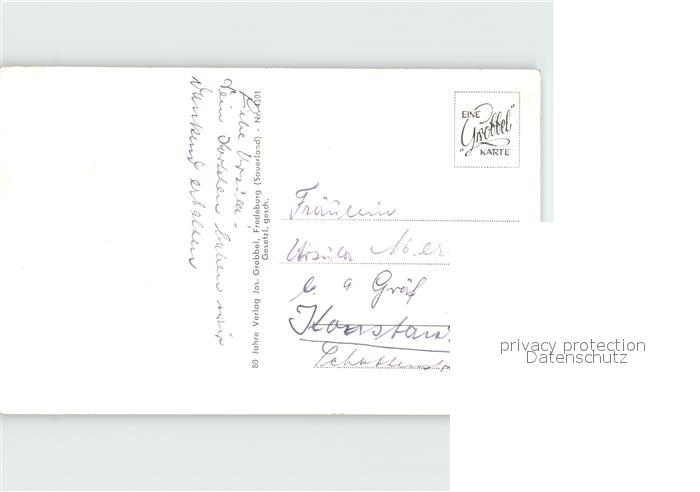 Liebe Ursula!
Dein Kärtchen haben wir
dankend erhalten
80 Jahre Verlag Jos. Grobbel, Fredeburg (Sauerland) - Nr.
Gesetzl. gesch.
EINE
"Grobbel"
KARTE
Fräulein
Ursula
b. a Gräf
Konstanz
privacy protection
Datenschutz